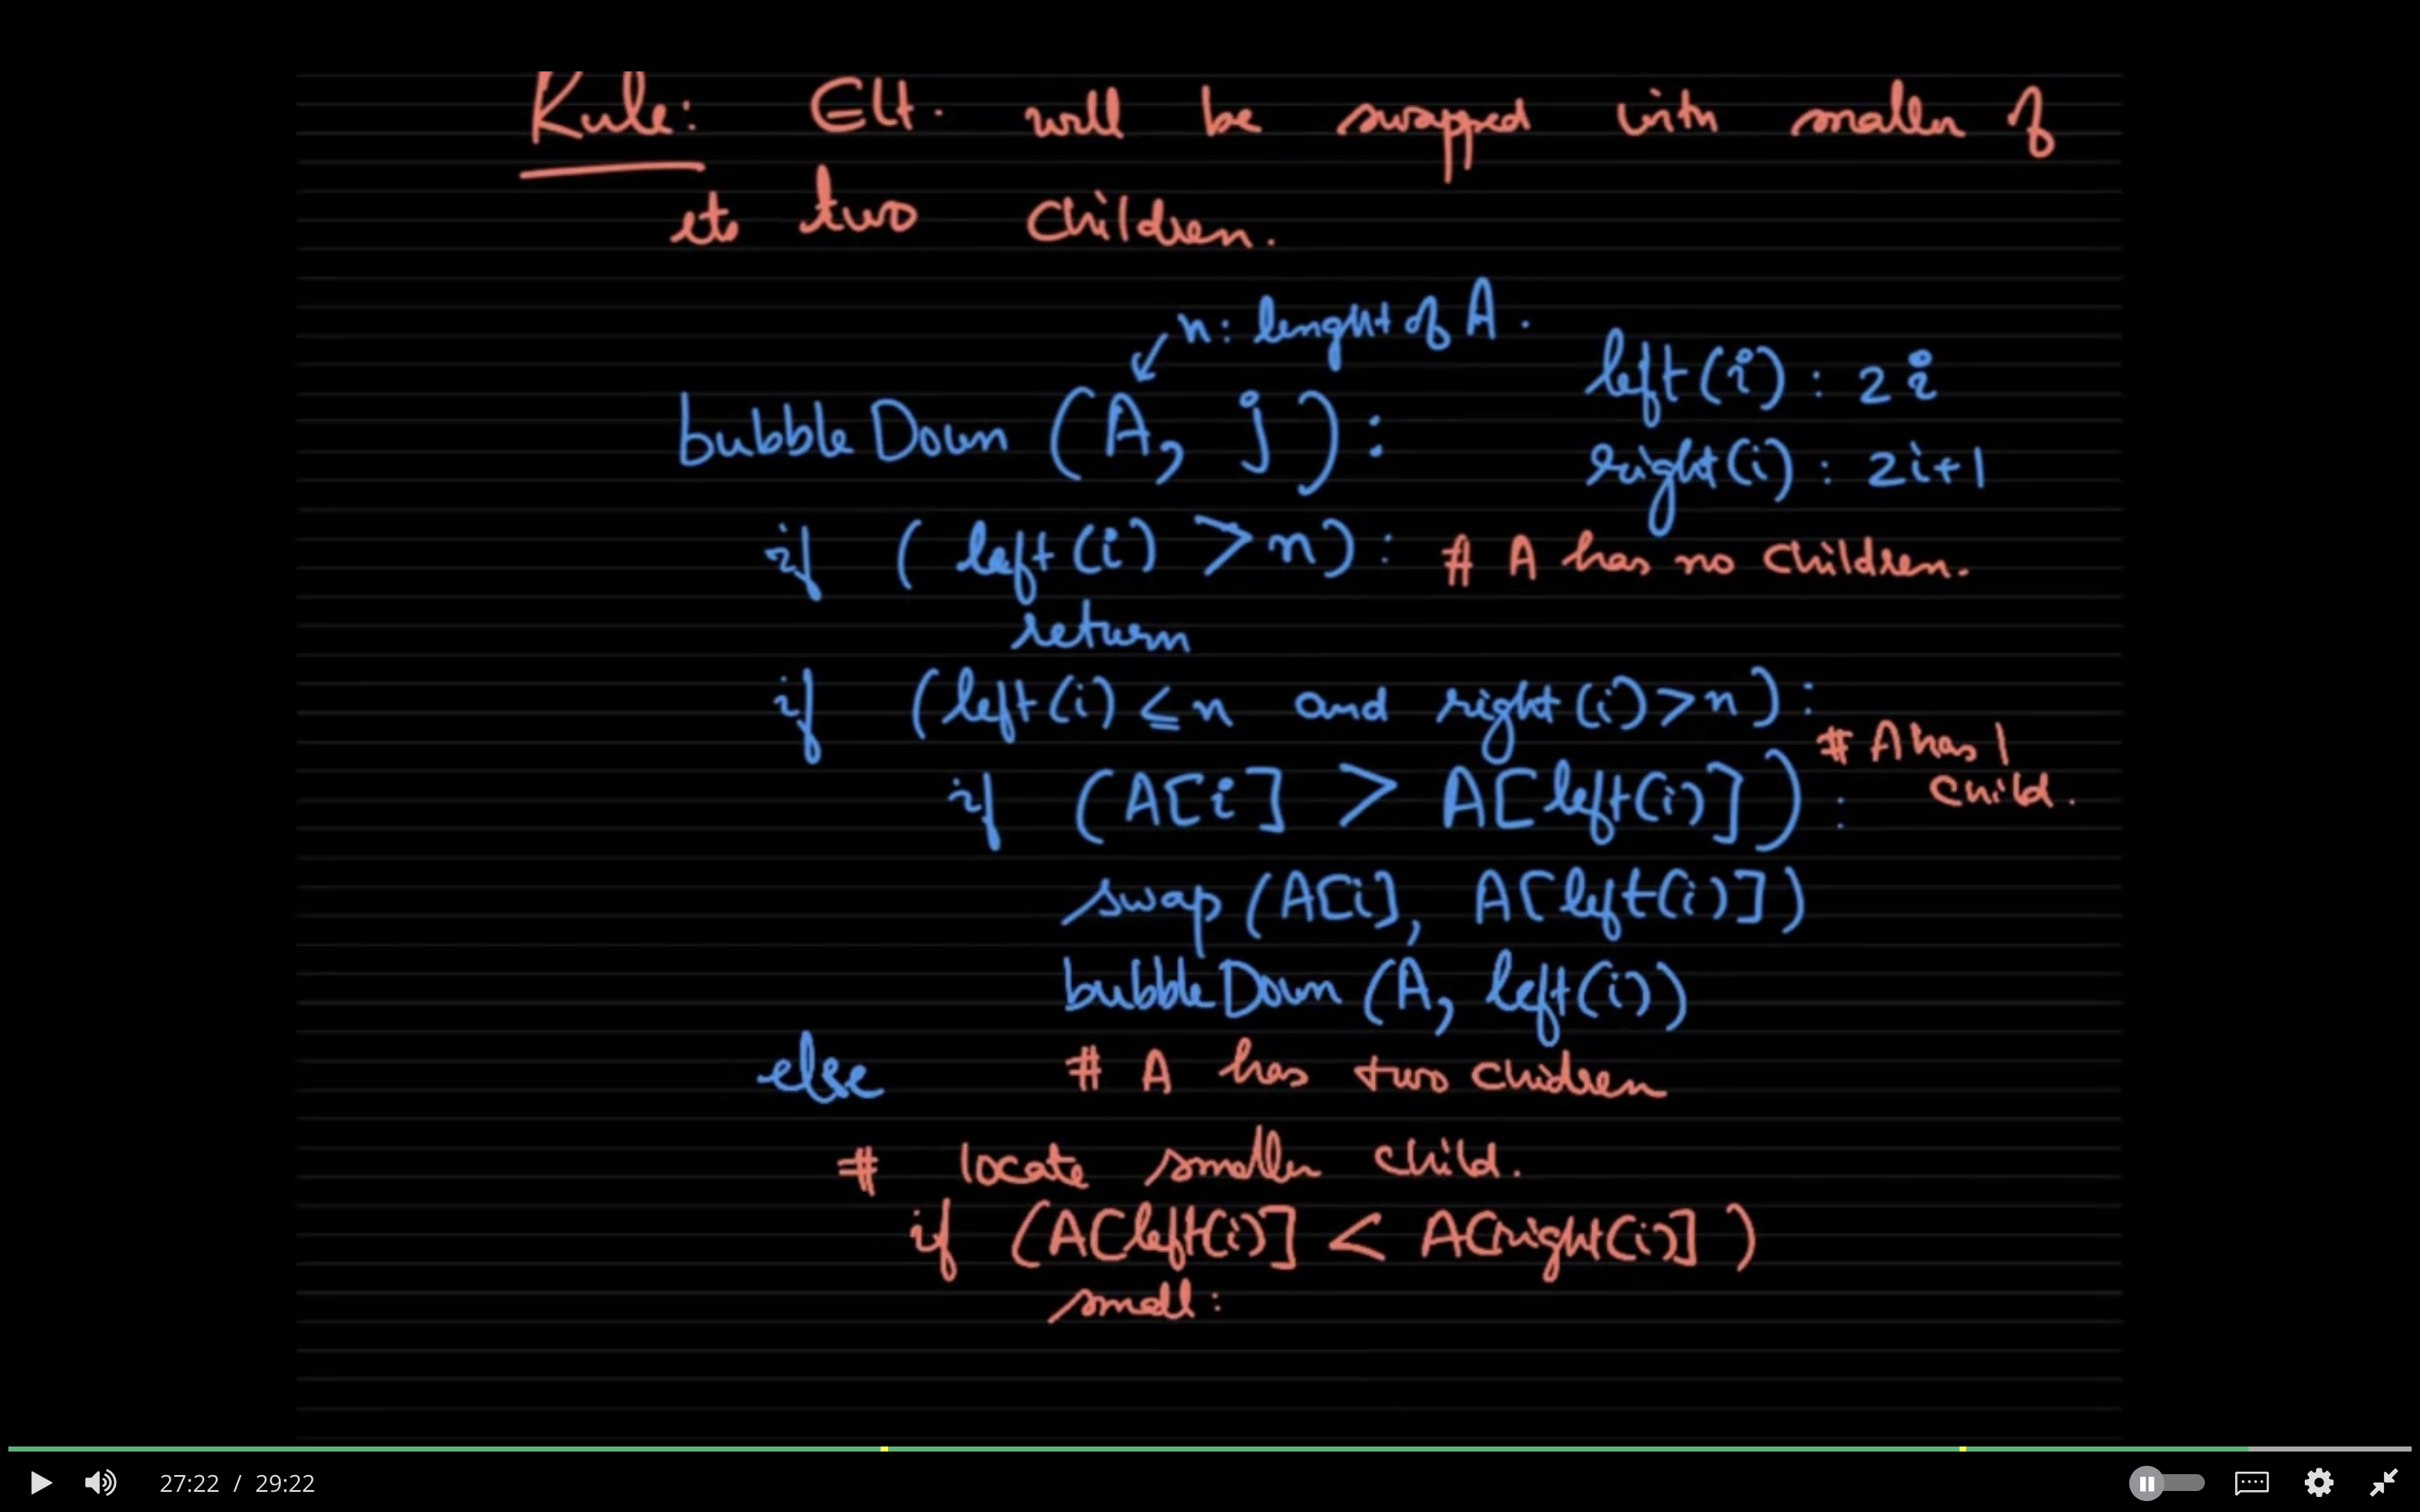 Rule: Elt. will be swapped with smaller of
its two children.
n: lenght of A.
left(i): 2i
bubbleDown (A, j):
right(i): 2i+1
if (left(i) > n): # A has no children.
return
if (left(i) ≤ n and right(i) > n):
# A has 1
child.
if (A[i] > A[left(i)]):
swap (A[i], A[left(i)])
bubbleDown (A, left(i))
else # A has two chidren
# locate smaller child.
if (A[left(i)] < A[right(i)])
small:
27:22 / 29:22